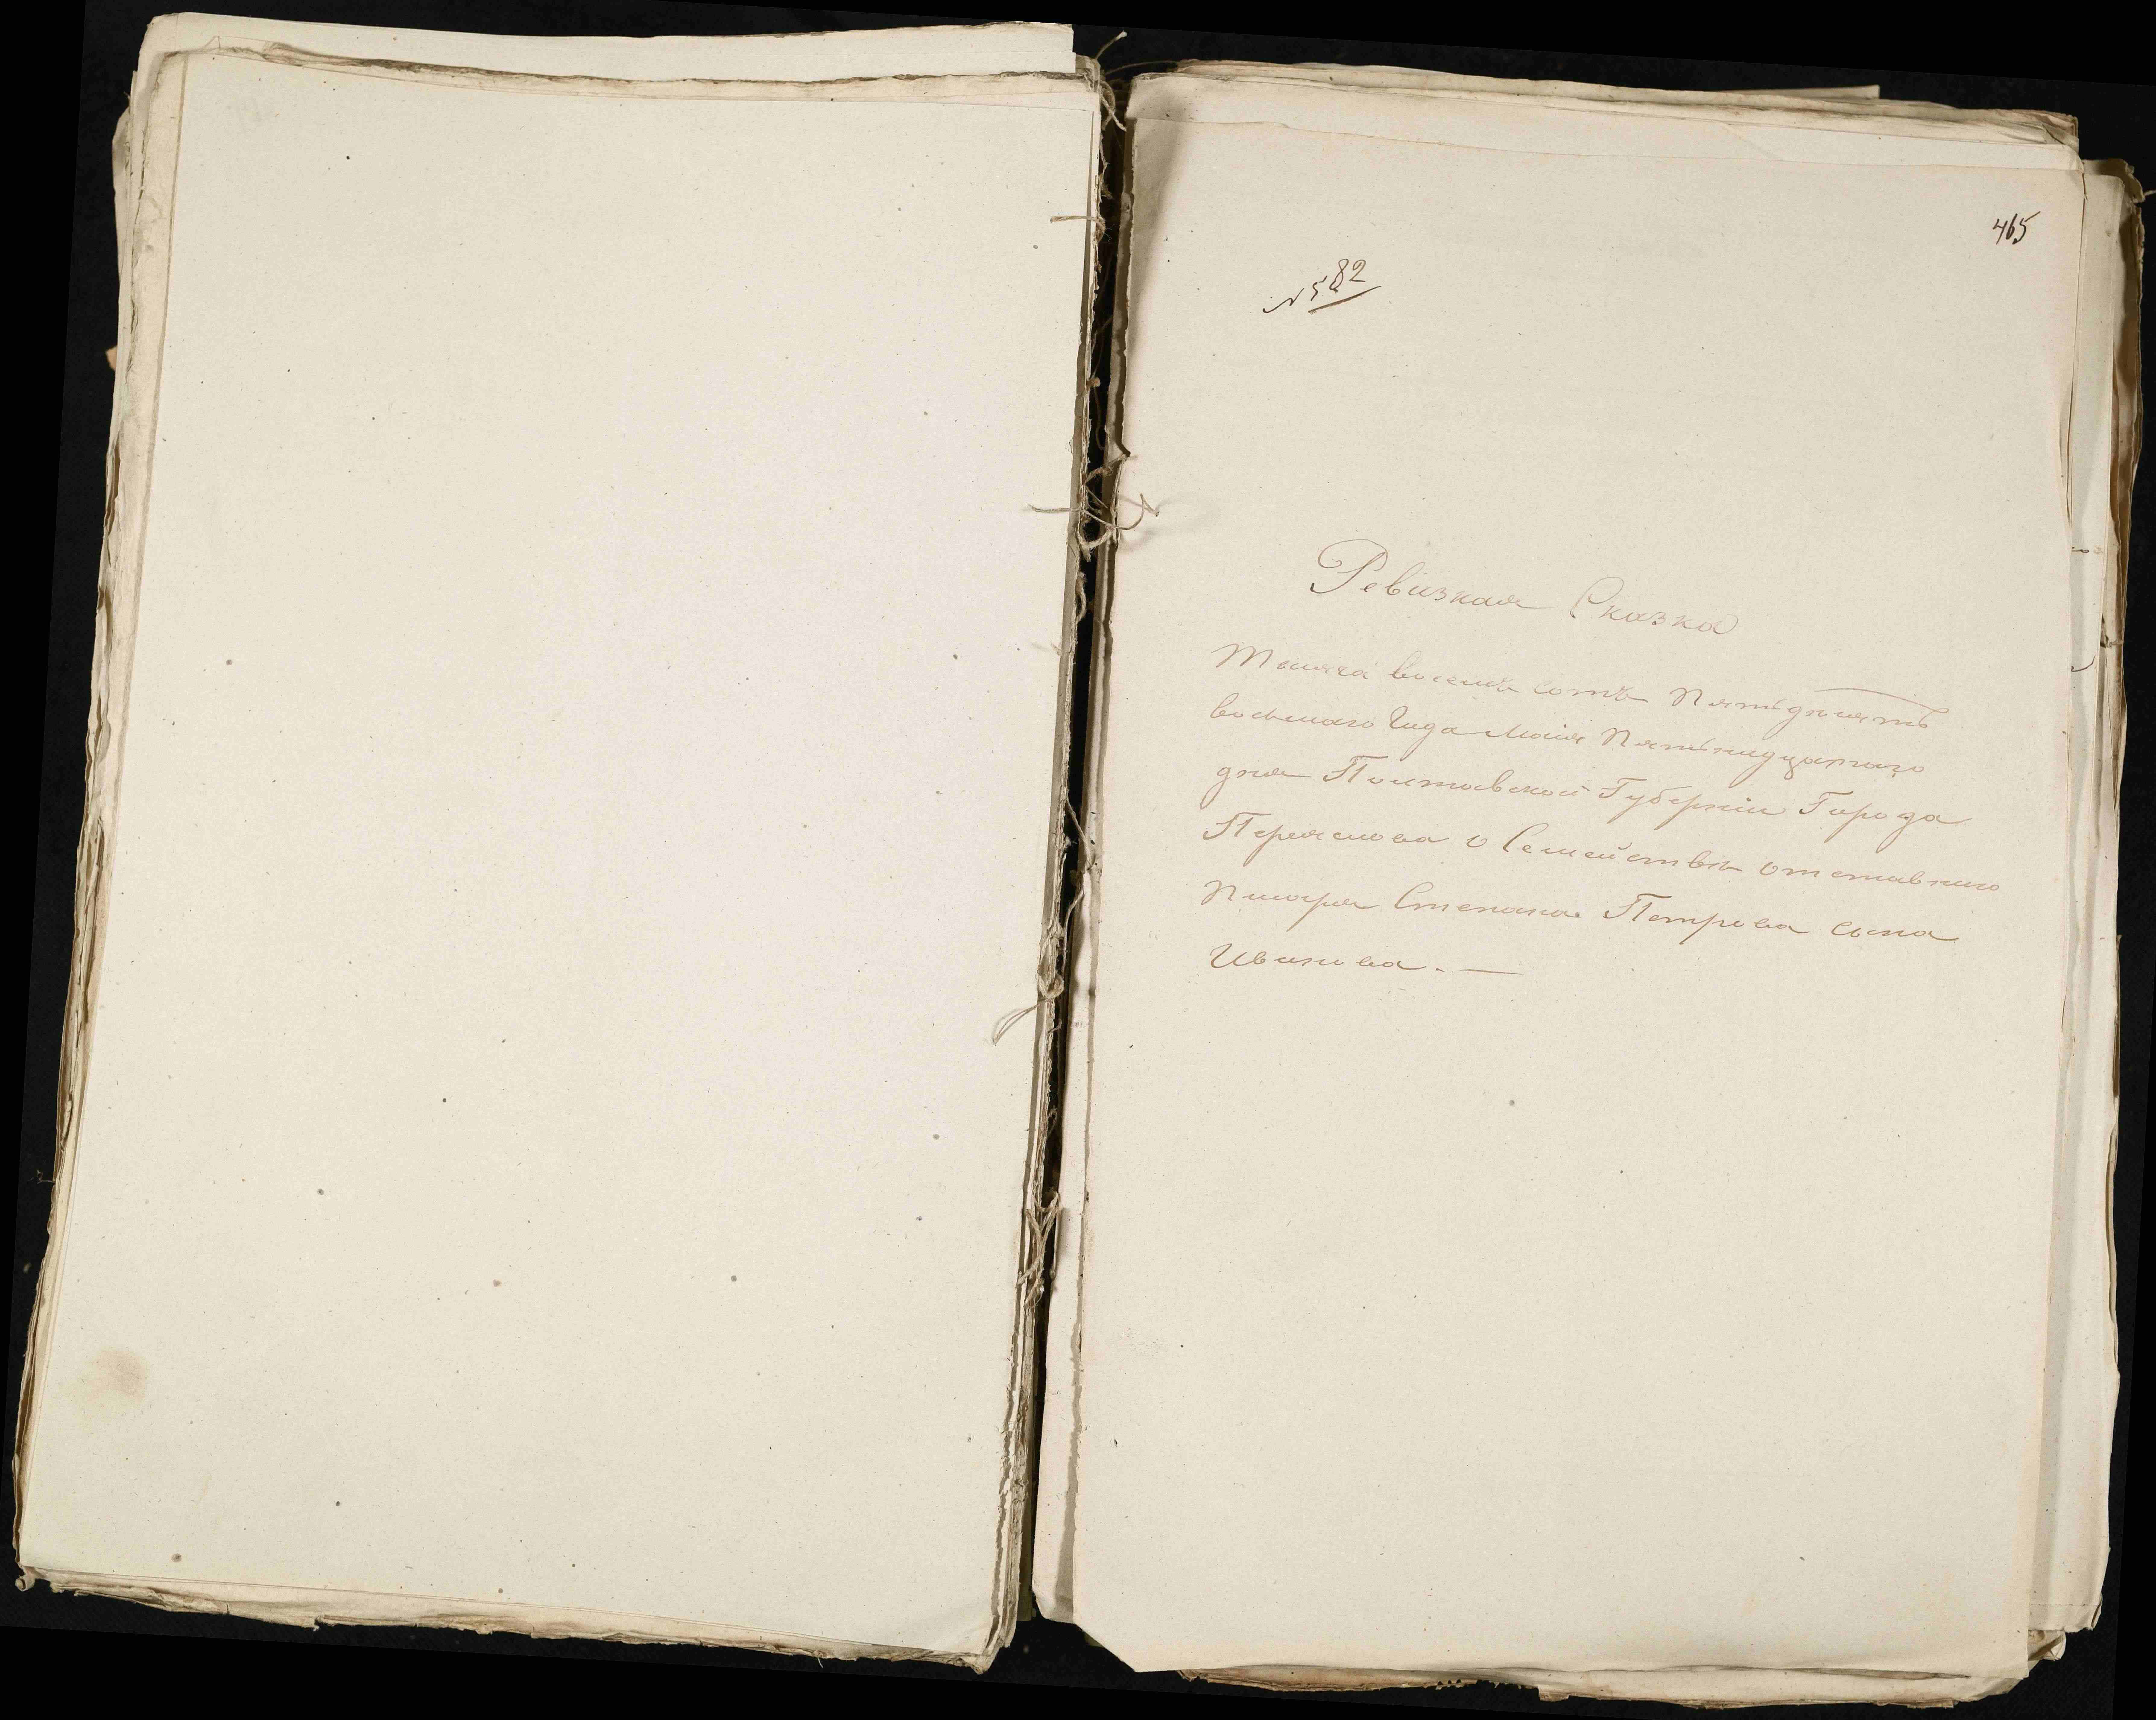 465
№ 582
Ревизкая Сказка
Тысяча восемь сотъ Пятьдесятъ
восьмаго Года Маія Пятьнадцатаго
дня Полтавской Губерніи Города
Переяслова о Семействѣ отставного
Писаря Степана Петрова сына
Иванова. —